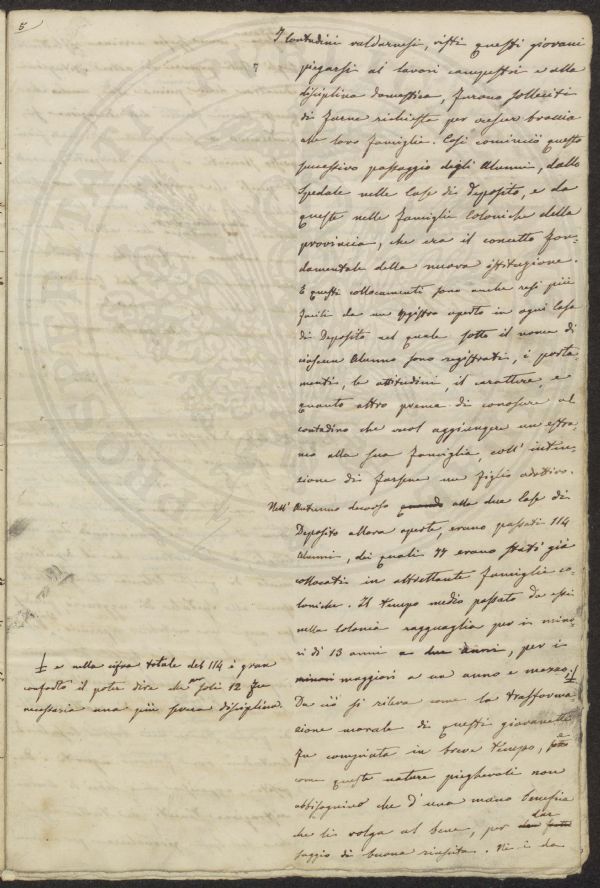 5
I contadini valdarnesi, visti questi giovani
piegarsi ai lavori campestri e alla
disciplina domestica, furono solleciti
di farne richieste per crescer braccia
alle loro famiglie. Così cominciò questo
successivo passaggio degli Alunni, dallo
Spedale nelle Case di Deposito, e da
queste nelle famiglie Coloniche della
provincia, che era il concetto fon-
damentale della nuova istituzione.
E questi collocamenti sono anche resi più
facili da un registro aperto in ogni Casa
di Deposito nel quale sotto il nome di
ciascun Alunno sono registrati, i porta-
menti, le attitudini, il carattere, e
quanto altro prema di conoscere al
contadino che vuol aggiungere un estra-
neo alla sua famiglia, coll' inten-
zione di farsene un figlio adottivo.
Nell' Autunno decorso quando alle due Case di
Deposito allora aperte, erano passati 114
Alunni, dei quali 77 erano stati già
collocati in altrettante famiglie co-
loniche. Il tempo medio passato da essi
nella colonia ragguaglia per i mino-
ri di 13 anni a due anni, per i
minori maggiori a un anno e mezzo;
e nella cifra totale del 114 è gran
conforto il poter dire che per soli 12 fu
necessaria una più severa disciplina.
Da ciò si rileva come la trasforma
zione morale di questi giovanetti
fu compiuta in breve tempo, e
come queste nature pieghevoli non
abbisognino che d' una mano benefica
che li volga al bene, per dar
saggio di buona riuscita. Nè è da
PROSPERITAS